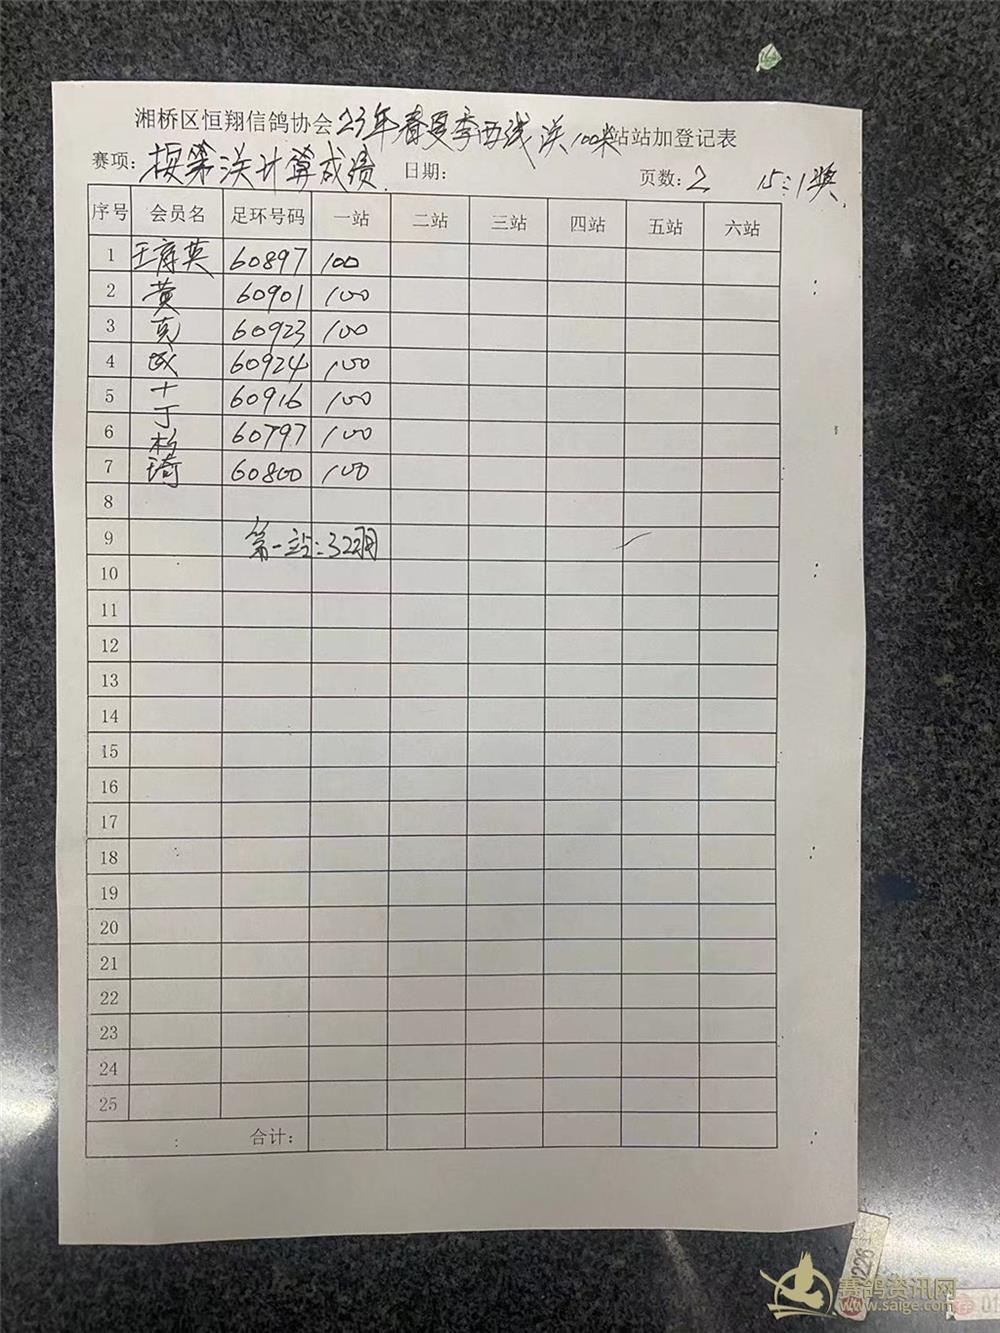 湘桥区恒翔信鸽协会23年春夏季西线 100 站站加登记表
赛项: 计算成绩. 日期: 页数: 2 15:1奖.
序号 会员名 足环号码 一站 二站 三站 四站 五站 六站
1 60897 100
2 黄 60901 100
3 克 60923 100
4 成 60924 100
5 十 60916 100
丁
6 60797 100
7 琦 60800 100
8
9 第一站:32羽
10
11
12
13
14
15
16
17
18
19
20
21
22
23
24
25
合计:
1226
赛鸽资讯网
www.saige.com
01